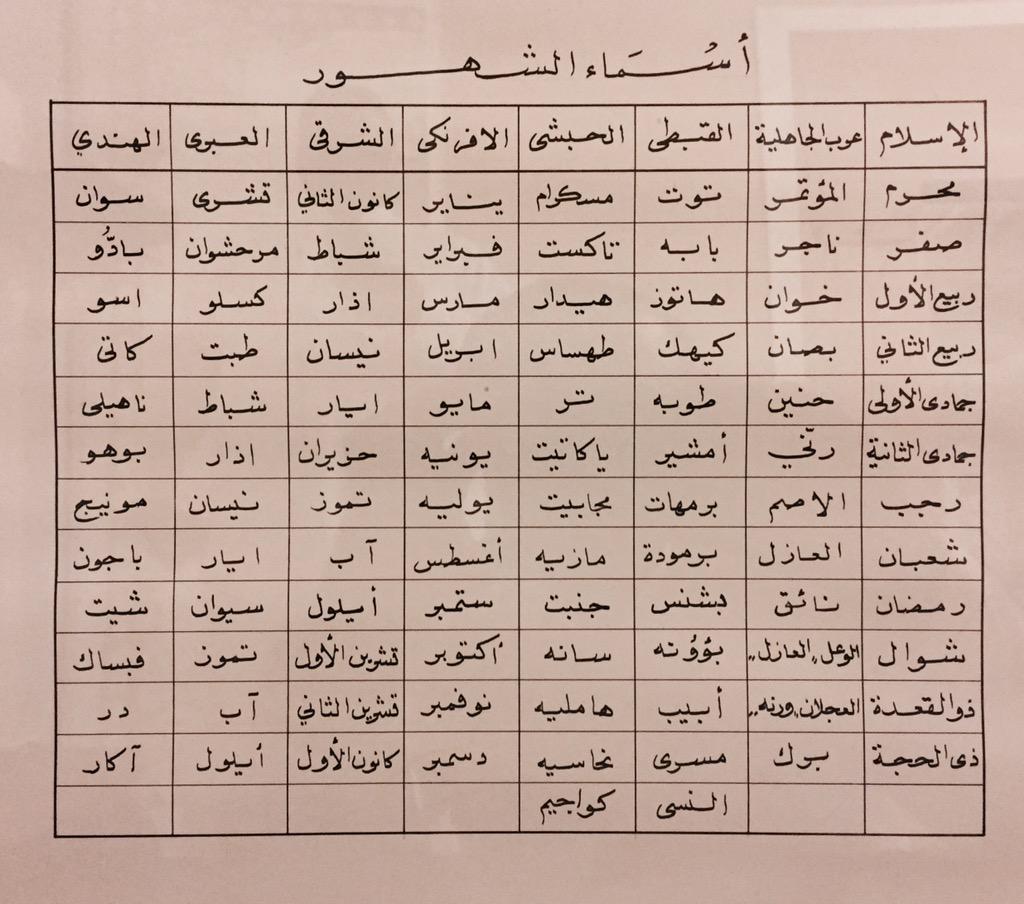 أسماء الشهور
الإسلام عرب الجاهلية القبطى الحبشى الافرنكى الشرقي العبرى الهندي
محرم المؤتمر توت مسكرام يناير كانون الثاني تشرى سوان
صفر ناجر بابه تاكست فبراير شباط مرحشوان بادُّو
ربيع الأول خوان هاتوز هيدار مارس اذار كسلو اسو
ربيع الثاني بصان كيهك طهساس ابريل نيسان طبت كاتى
جمادى الأولى حنين طوبه تر مايو ايار شباط ناهيلى
جمادى الثانية ربّي أمشير ياكاتيت يونيه حزيران اذار بوهو
رجب الاصم برمهات مجابيت يوليه تموز نيسان مونيج
شعبان العازل برمودة مازيه أغسطس آب ايار باجون
رمضان ناتق بشنس جنبت ستمبر أيلول سيوان شيت
شوال الوعل "العازل" بؤونه سانه أكتوبر تشرين الأول تموز فبساك
ذو القعدة العجلان "ورنه" أبيب هامليه نوفمبر تشرين الثاني آب در
ذى الحجة برك مسرى نحاسيه دسمبر كانون الأول أيلول آكار
النسى كواجيم